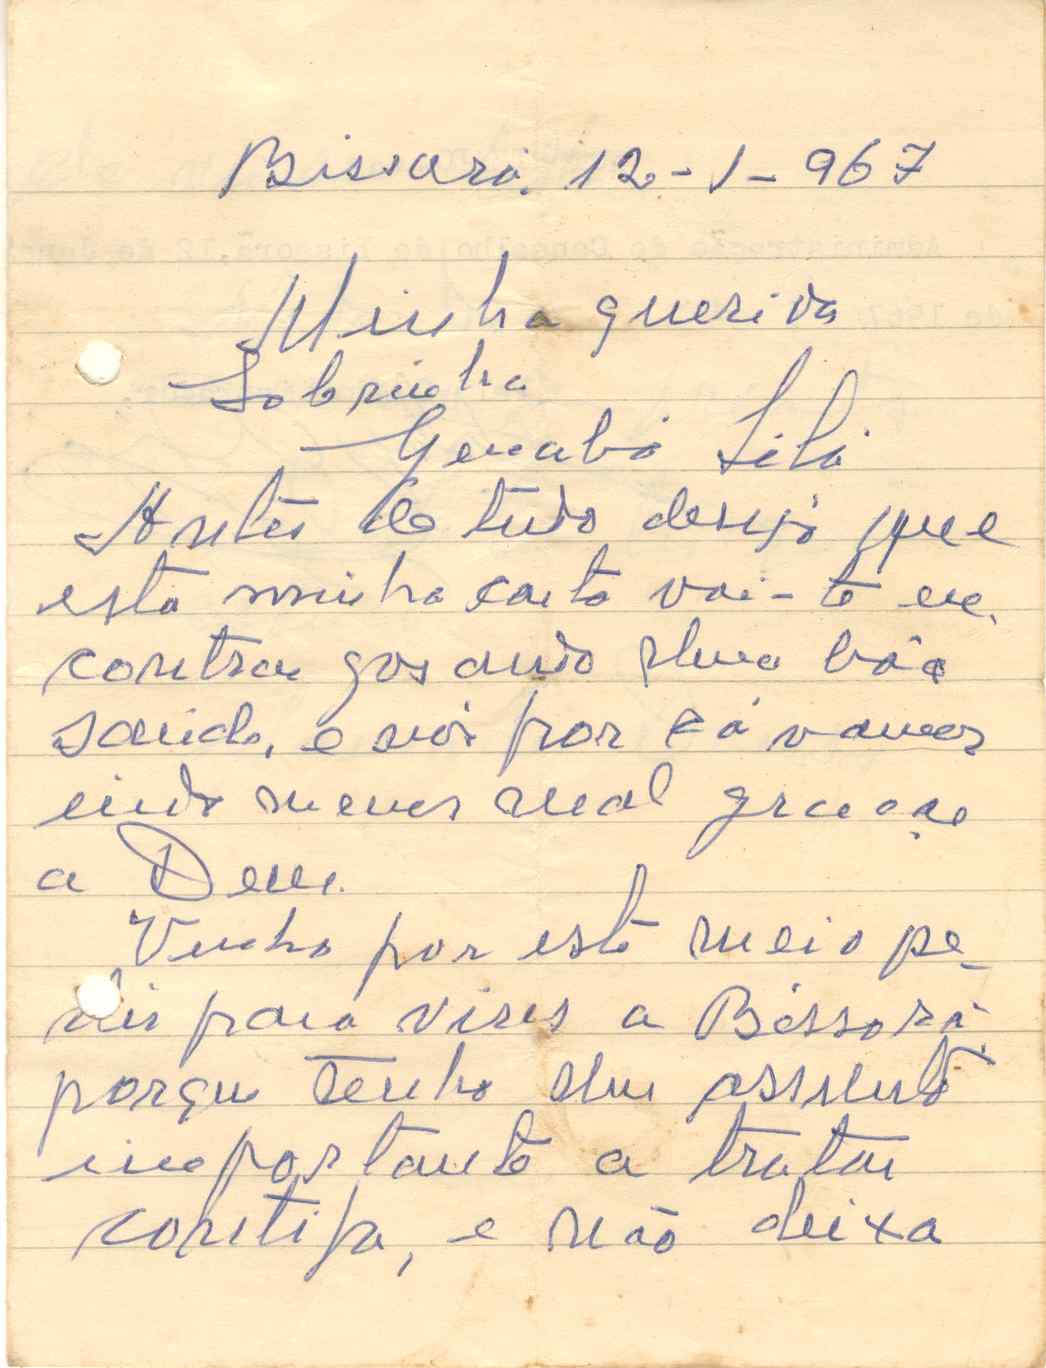 Bissorã, 12-1-967
Minha querida
Sobrinha
Genabá Silá
Antes de tudo desejo que
esta minha carta vai-te en
contrar gosando duma bôa
saúde, e nós por cá vamos
indo menos mal graças
a Deus.
Venho por este meio pe-
dir para vires a Bissorã,
porque tenho um assunto
importante a tratar
contigo, e não deixa